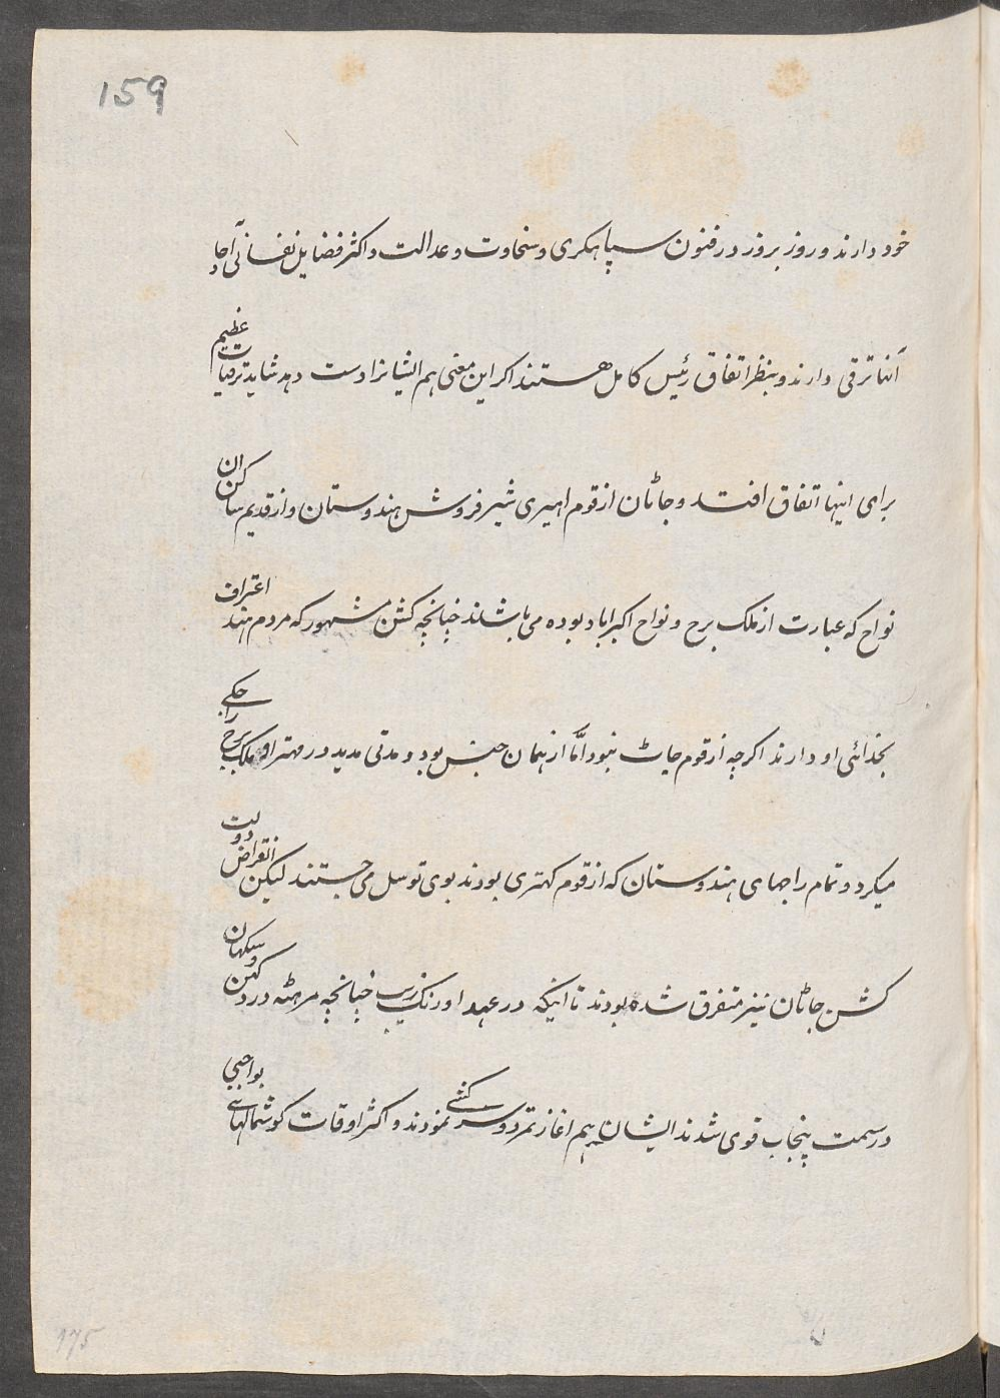 159
خود دارند و روز بروز در فنون سپاهکری و سخاوت و عدالت و اکثر فضایل نفسانی آحاد
آنها ترقی دارند و بنظر اتفاق رئیس کامل هستند اکر این معنی هم ایشانرا دست دهد شاید ترقیات عظیم
برای اینها اتفاق افتد و جاتان از قوم اهیری شیر فروش هندوستان و از قدیم ساکنان
نواح که عبارت از ملک برج و نواح اکبراباد بوده می باشند چنانچه کشن مشهور که مردم هند اعتراف
بخدائی او دارند اکرچه از قوم جات نبود اما از همان جنس بود و مدتی مدید در مهترا و ملک برج راجکی
میکرد و تمام راجهای هندوستان که از قوم کهتری بودند بوی توسل می جستند لیکن انقراض دولت
کشن جاتان نیز متفرق شده بودند تا اینکه در عهد اورنک زیب چنانچه مرهته در دکهن و سکهان
در سمت پنجاب قوی شدند ایشان هم اغاز تمرد و سرکشی نمودند و اکثر اوقات کوشمالهای بواجبی
175